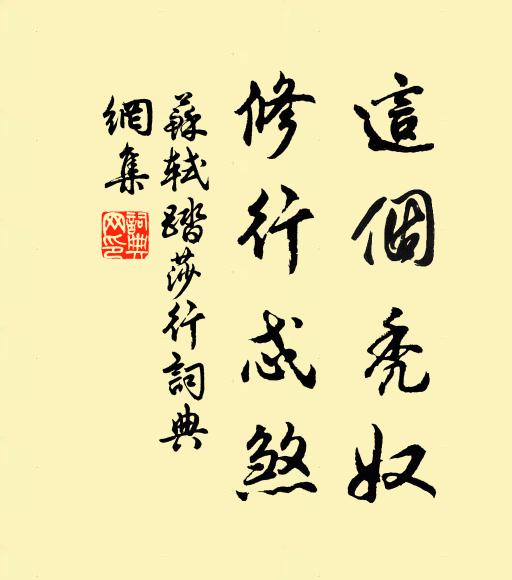 這個秃奴
修行忒煞
蘇軾踏莎行詞典
網集
詞典
网印